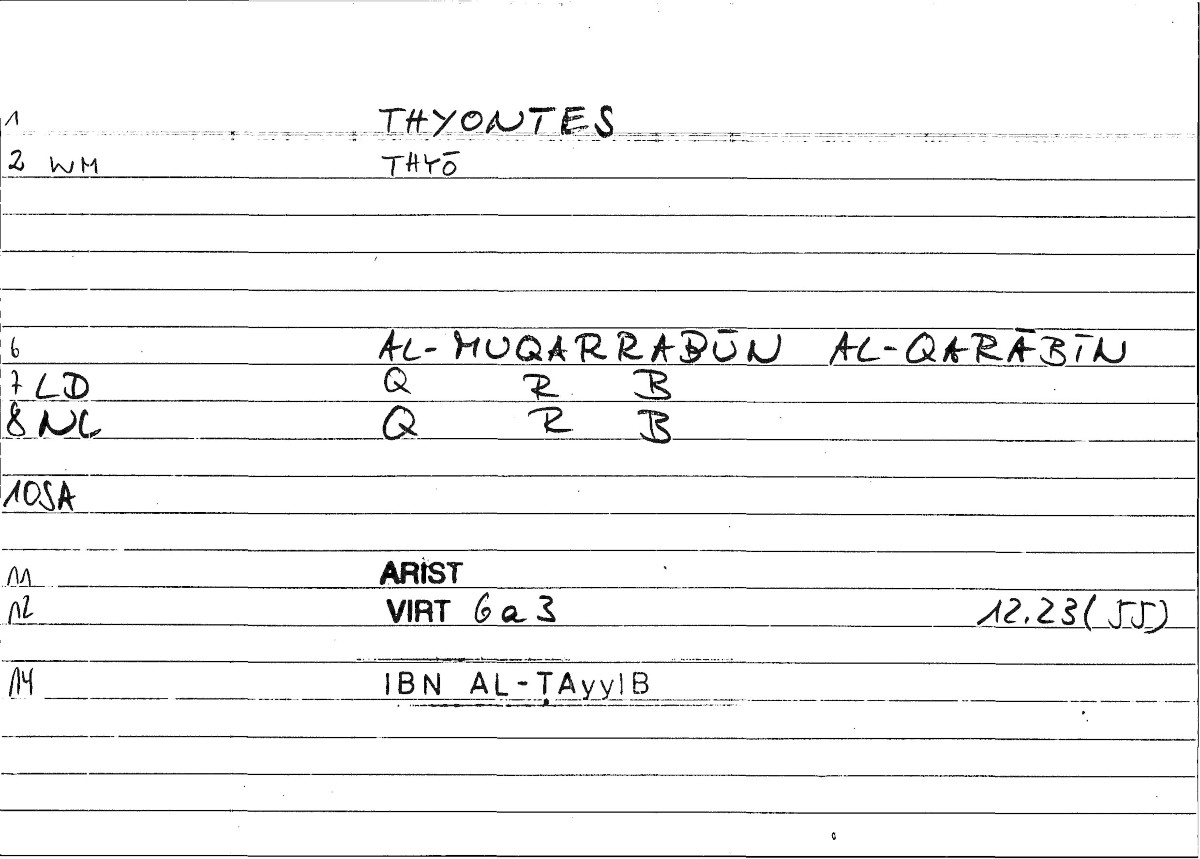 1 THYONTES
2 WM THYŌ
6 AL-MUQARRABŪN AL-QARĀBĪN
7 LD Q R B
8 NL Q R B
10SA
11 ARIST
12 VIRT 6a3 12.23(55)
14 IBN AL-ṬAyyIB